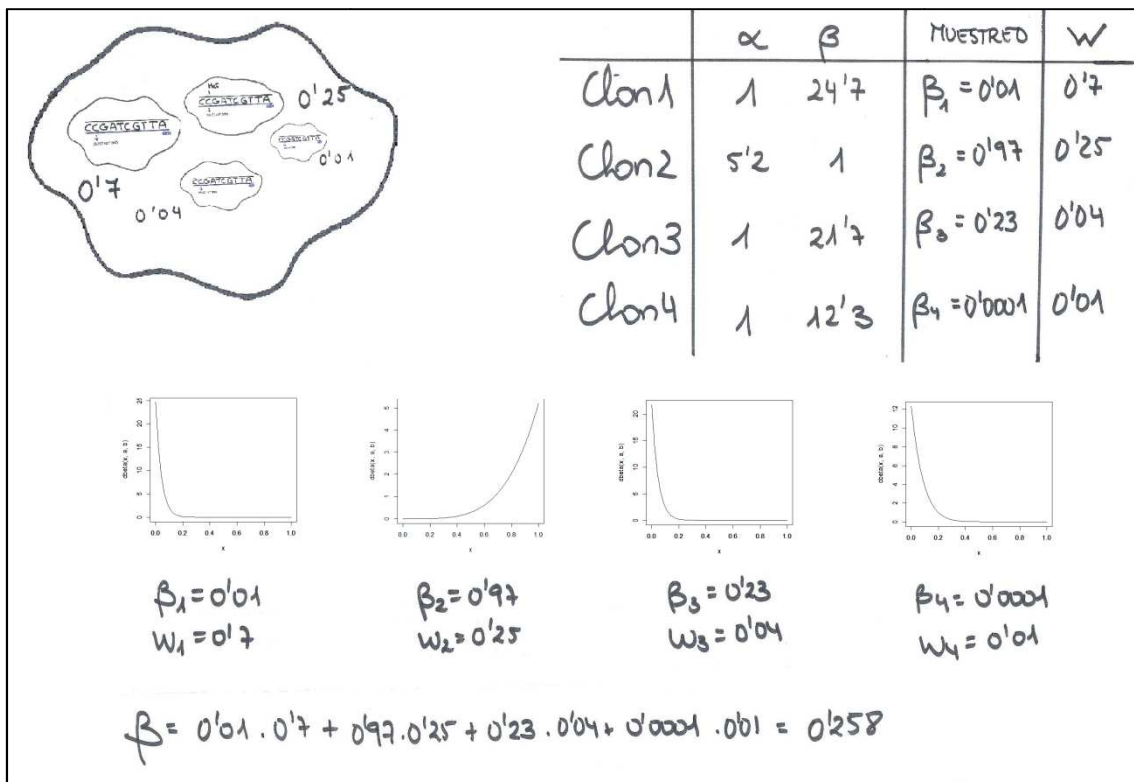 Me
CCGATCGTTA
0'25
CCGATCGTTA
CCGATCGTTA
0'01
0'7
CCGATCGTTA
0'04
α β MUESTREO W
Clon1 1 24'7 β1=0'01 0'7
Clon2 5'2 1 β2=0'97 0'25
Clon3 1 21'7 β3=0'23 0'04
Clon4 1 12'3 β4=0'0001 0'01
dbeta(x, a, b)
0 5 10 15 20 25
0.0 0.2 0.4 0.6 0.8 1.0
x
dbeta(x, a, b)
0 1 2 3 4 5
0.0 0.2 0.4 0.6 0.8 1.0
x
dbeta(x, a, b)
0 5 10 15 20
0.0 0.2 0.4 0.6 0.8 1.0
x
dbeta(x, a, b)
0 2 4 6 8 10 12
0.0 0.2 0.4 0.6 0.8 1.0
x
β1=0'01
W1=0'7
β2=0'97
W2=0'25
β3=0'23
W3=0'04
β4=0'0001
W4=0'01
β= 0'01.0'7 + 0'97.0'25 + 0'23.0'04 + 0'0001.0'01 = 0'258